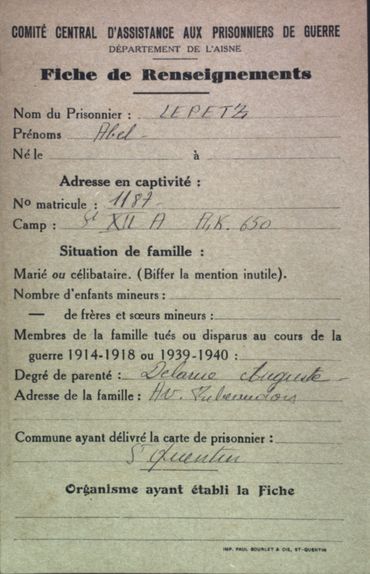 COMITÉ CENTRAL D'ASSISTANCE AUX PRISONNIERS DE GUERRE
DÉPARTEMENT DE L'AISNE
Fiche de Renseignements
Nom du Prisonnier : LEPETZ
Prénoms Abel
Né le à
Adresse en captivité :
No matricule : 1187
Camp : XII A A.K. 650
Situation de famille :
Marié ou célibataire. (Biffer la mention inutile).
Nombre d'enfants mineurs :
— de frères et sœurs mineurs :
Membres de la famille tués ou disparus au cours de la
guerre 1914-1918 ou 1939-1940 :
Degré de parenté : Auguste
Adresse de la famille :
Commune ayant délivré la carte de prisonnier :
St Quentin
Organisme ayant établi la Fiche
IMP. PAUL BOURLET & CIE, ST-QUENTIN